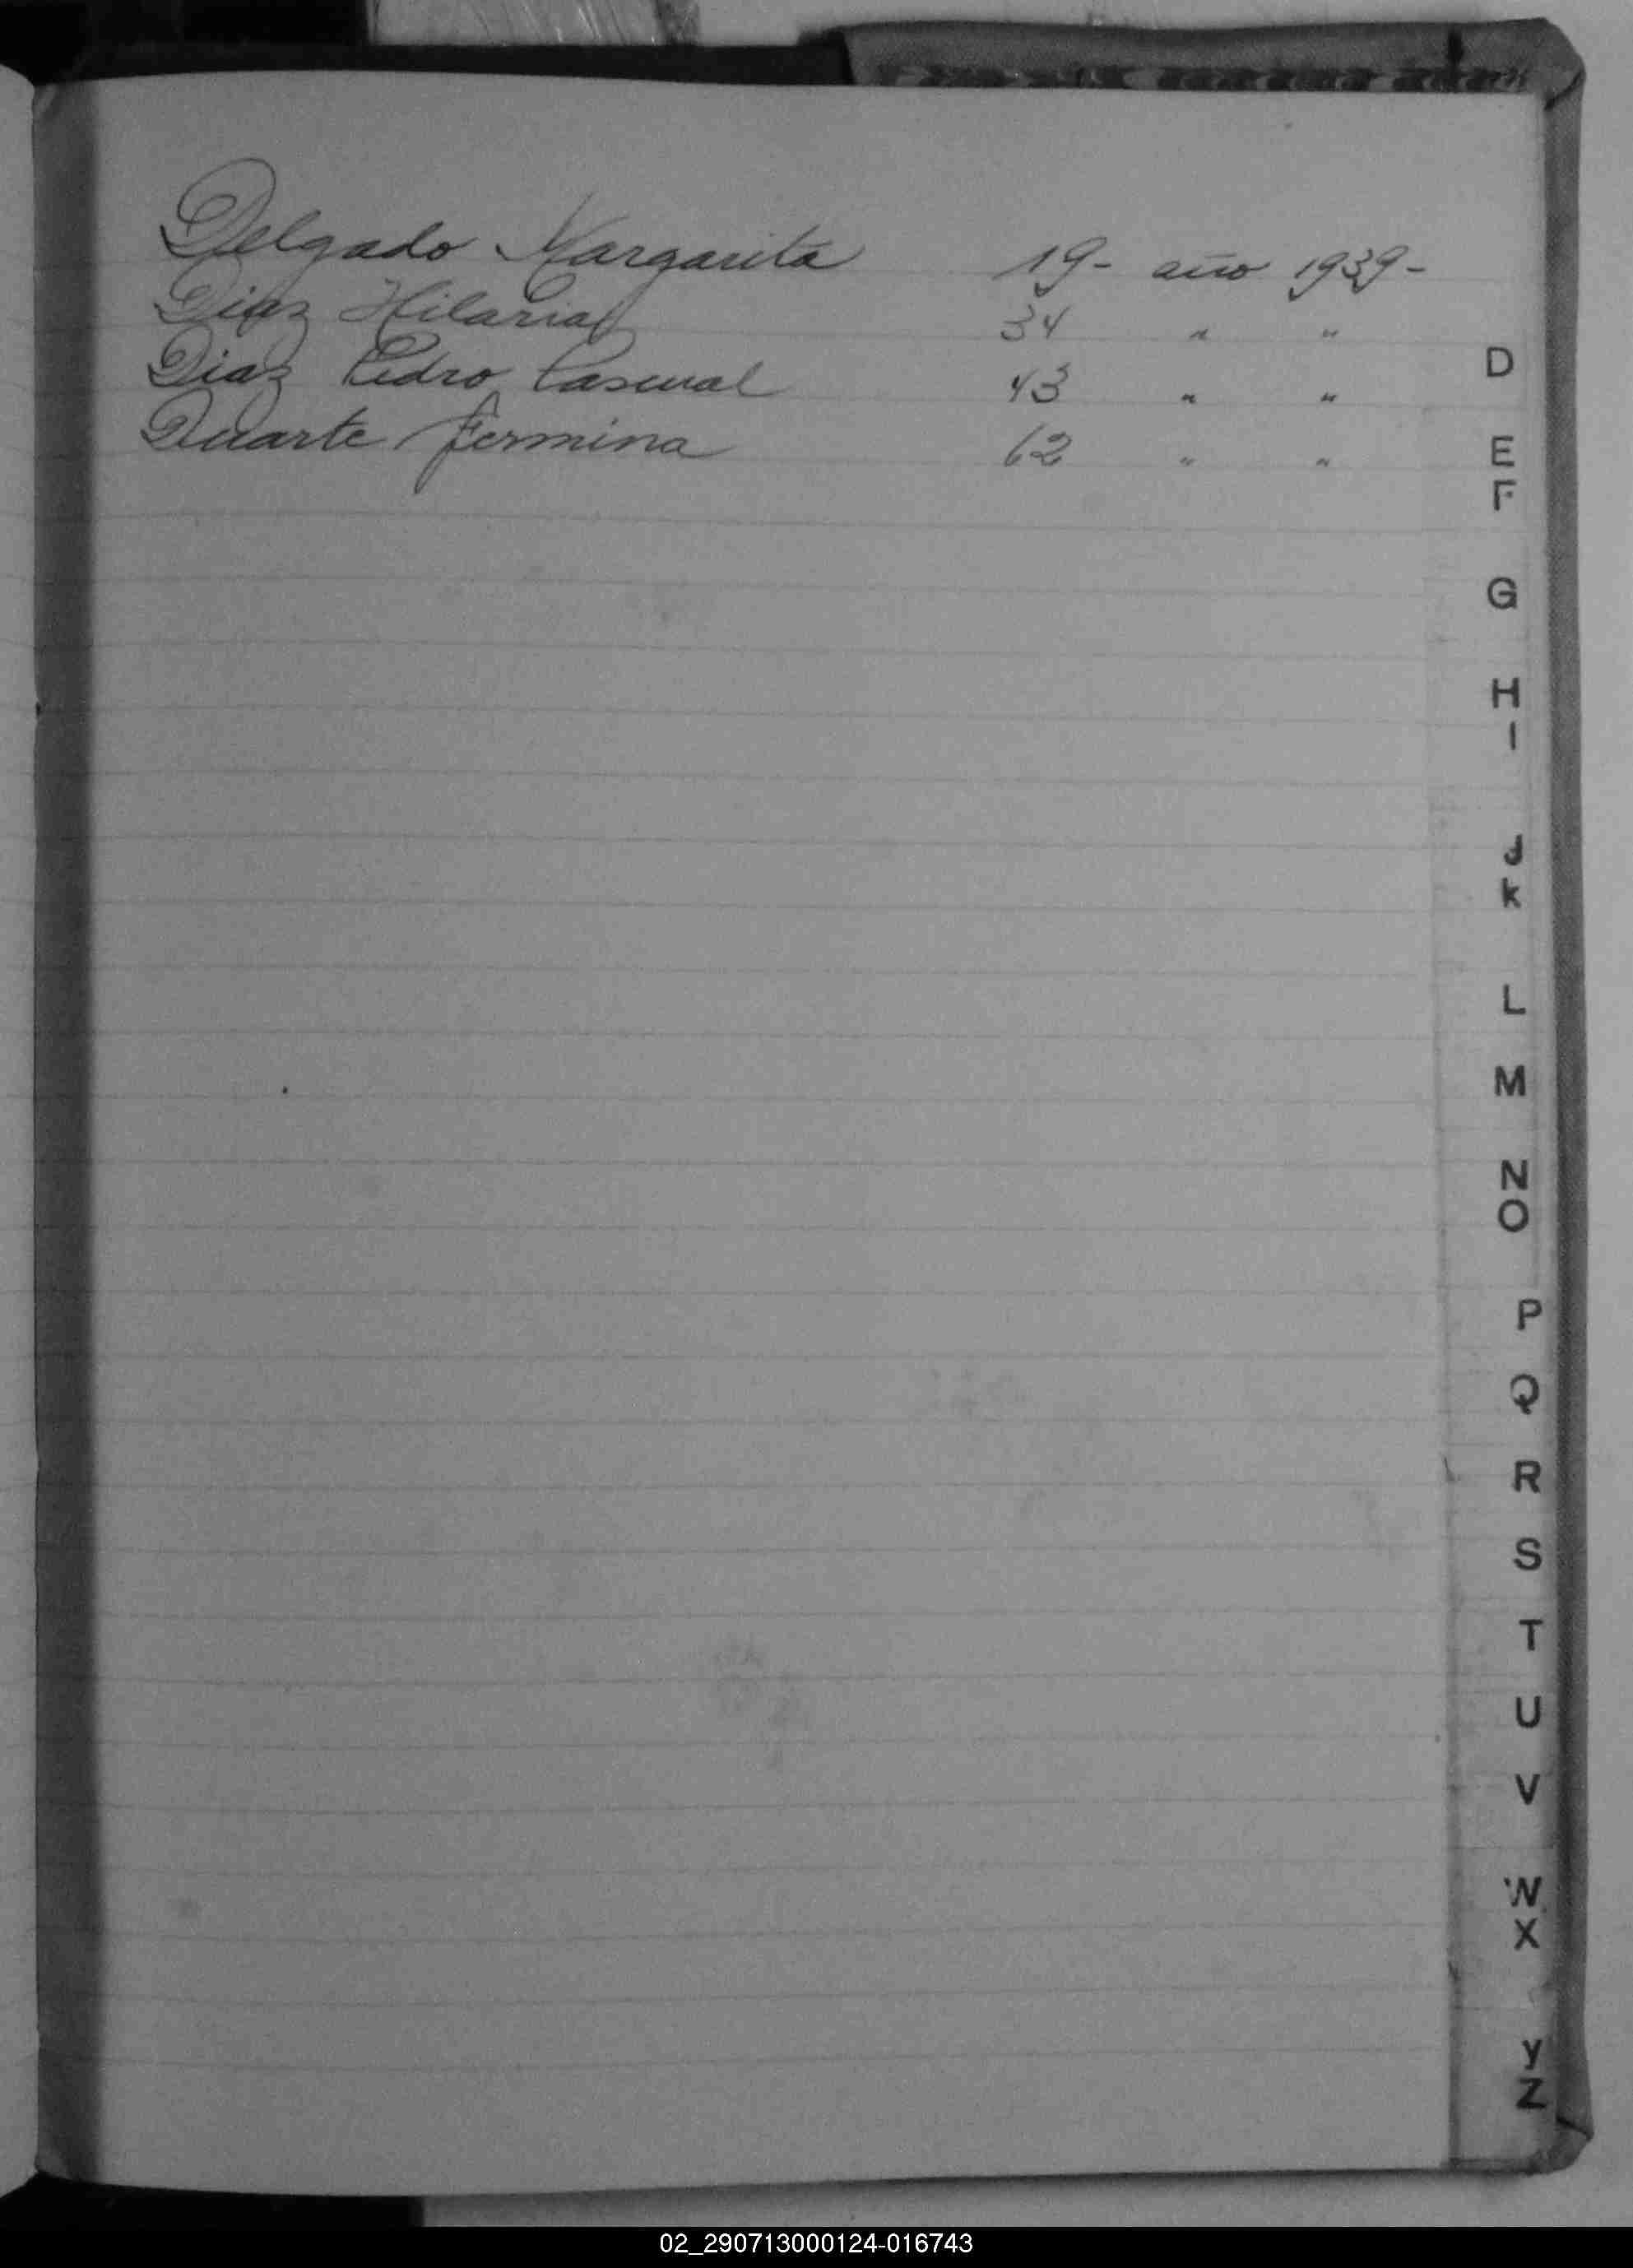 Delgado Margarita 19- año 1939-
Diaz Hilaria 34 " "
Diaz Pedro Pascual 43 " "
Duarte Fermina 62 " "
D
E
F
G
H
I
J
K
L
M
N
O
P
Q
R
S
T
U
V
W
X
Y
Z
02_290713000124-016743